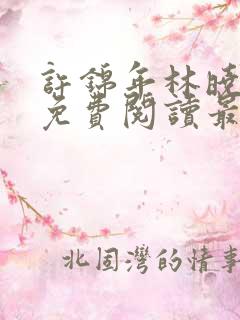 許錦年林曉
免費閱讀最
北固灣的情事